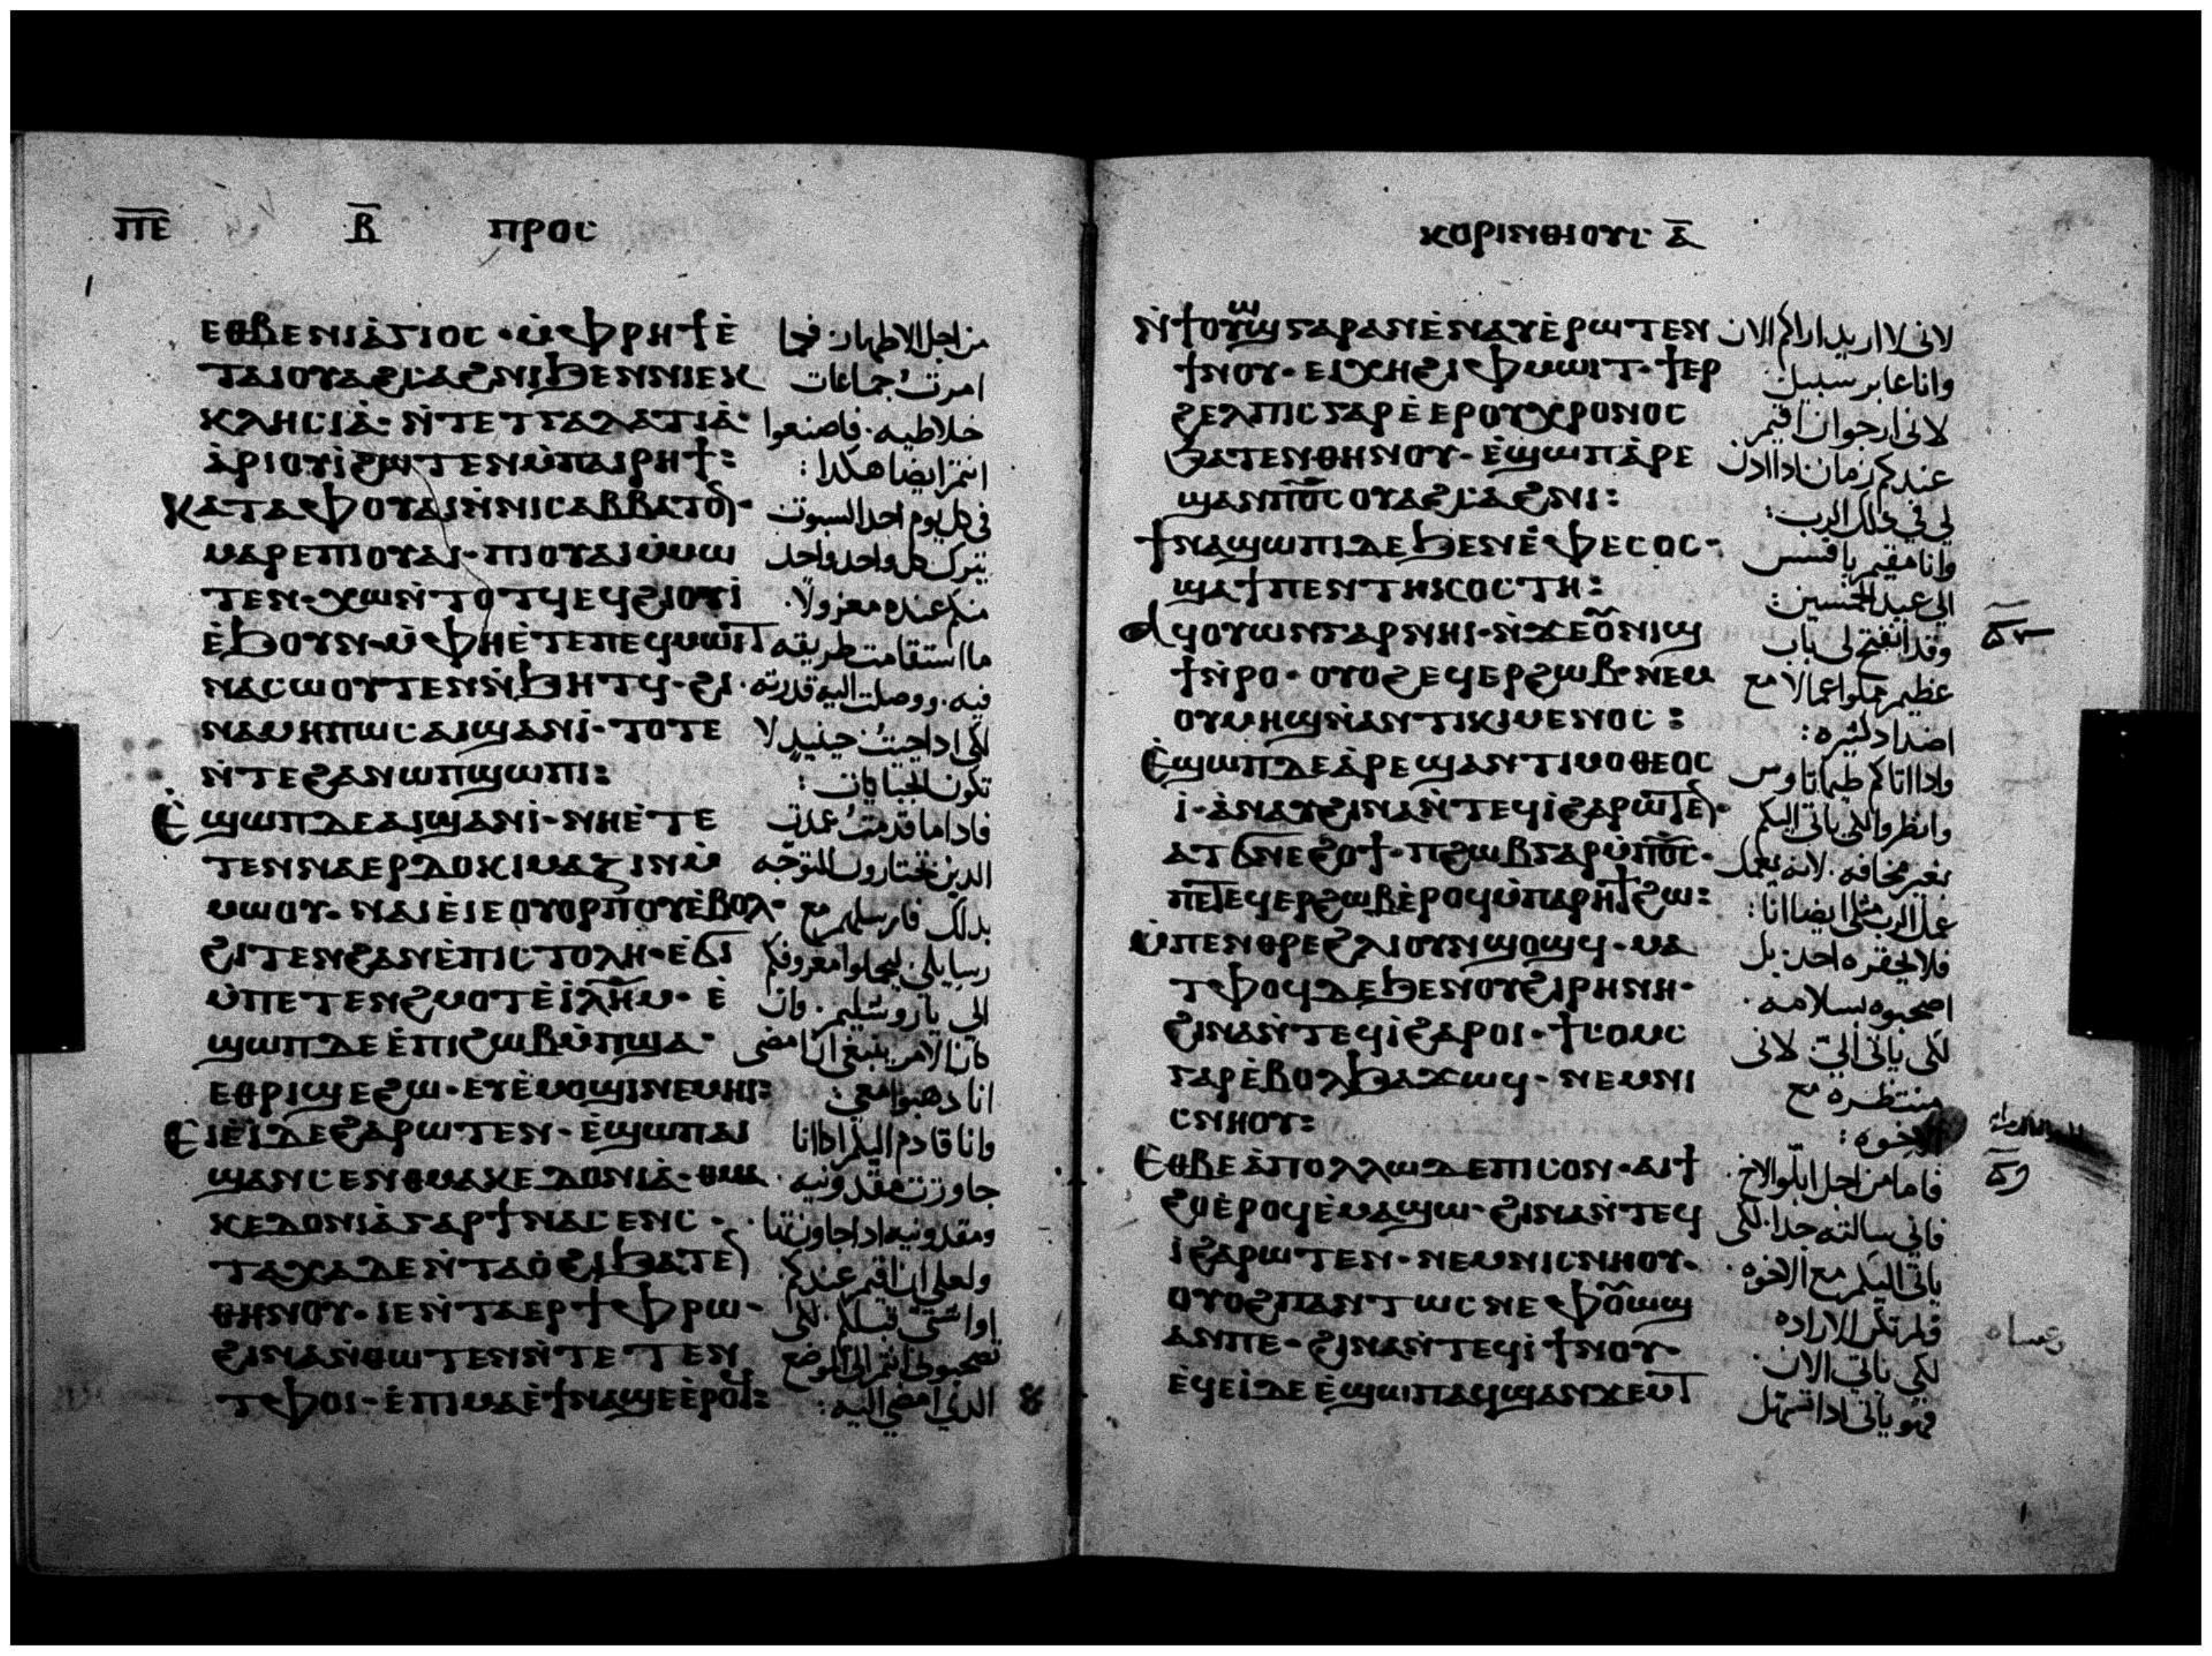 ⲡ̅ⲉ̅ ⲃ̅ ⲡⲣⲟⲥ
ⲉⲑⲃⲉⲛⲓⲁ̀ⲅⲓⲟⲥ · ⲙ̀ⲫⲣⲏϯⲉ̀ من اجل الاطهار فكما
ⲧⲁⲓⲟⲩⲁϩⲥⲁϩⲛⲓϧⲉⲛⲛⲓⲉⲕ امرت جماعات
ⲕⲗⲏⲥⲓⲁ̀ · ⲛ̀ⲧⲉⲧⲅⲁⲗⲁⲧⲓⲁ̀ · غلاطيه · فاصنعوا
ⲁ̀ⲣⲓⲟⲩⲓ̀ϩⲱⲧⲉⲛⲙ̀ⲡⲁⲓⲣⲏϯ : انتم ايضا هكدا :
ⲕⲁⲧⲁⲫⲟⲩⲁⲓⲛ̀ⲛⲓⲥⲁⲃⲃⲁⲧⲟⲛ · في كل يوم احد السبوت
ⲙⲁⲣⲉⲡⲓⲟⲩⲁⲓ · ⲡⲓⲟⲩⲁⲓⲙ̀ⲙⲱ يترك كل واحد واحد
ⲧⲉⲛ · ⲭⲱⲛ̀ⲧⲟⲧϥⲉϥϩⲓⲟⲩⲓ̀ منكم عنده معزولا ·
ⲉ̀ϧⲟⲩⲛ · ⲙ̀ⲫⲏⲉ̀ⲧⲉⲡⲉϥⲙⲱⲓⲧ ما استقامت طريقه
ⲛⲁⲥⲱⲟⲩⲧⲉⲛⲛ̀ϧⲏⲧϥ · ϩⲓ · فيه · ووصلت اليه قدرته
ⲛⲁⲙⲏⲡⲱⲥⲁⲓϣⲁⲛⲓ̀ · ⲧⲟⲧⲉ لكى ادا جيت حينيد لا
ⲛ̀ⲧⲉϩⲁⲛⲱⲡϣⲱⲡⲓ : تكون الجبايات :
Ⲉ̀ϣⲱⲡⲇⲉⲁⲓϣⲁⲛⲓ̀ · ⲛⲏⲉ̀ⲧⲉ فادا ما قدمت عندكم
ⲧⲉⲛⲛⲁⲉⲣⲇⲟⲕⲓⲙⲁⲍⲓⲛⲙ̀ الدين تختارون للتوجه
ⲙⲱⲟⲩ · ⲛⲁⲓⲉ̀ⲓⲉⲟⲩⲟⲣⲡⲟⲩⲉ̀ⲃⲟⲗ · بدلك فارسلهم مع
ϩⲓⲧⲉⲛϩⲁⲛⲉ̀ⲡⲓⲥⲧⲟⲗⲏ · ⲉ̀ϭⲓ رسايلى ليحملوا معروفكم
ⲙ̀ⲡⲉⲧⲉⲛϩⲙⲟⲧⲉ̀ⲓ̀ⲗ̅ⲏ̅ⲙ · ⲉ̀ الى ياروشليم · وان
ϣⲱⲡⲇⲉⲉ̀ⲡⲓϩⲱⲃⲙ̀ⲡϣⲁ · كان الامر ينبغى ان امضى
ⲉⲑⲣⲓϣⲉϩⲱ · ⲉⲩⲉ̀ⲙⲟϣⲓⲛⲉⲙⲏⲓ : انا دهبوا معى :
Ⲉⲓⲉ̀ⲓ̀ⲇⲉϩⲁⲣⲱⲧⲉⲛ · ⲉ̀ϣⲱⲡⲁⲓ وانا قادم اليكم ادا انا
ϣⲁⲛⲥⲉⲛⲑⲙⲁⲕⲉⲇⲟⲛⲓⲁ̀ · ⲑⲙⲁ جاوزت مقدونيه ·
ⲕⲉⲇⲟⲛⲓⲁ̀ⲅⲁⲣϯⲛⲁⲥⲉⲛⲥ · ومقدونيه ادا جاوزتها
ⲧⲁⲭⲁⲇⲉⲛ̀ⲧⲁⲟ̀ϩⲓϧⲁⲧⲉⲛ ولعلى ان اقيم عندكم
ⲑⲏⲛⲟⲩ · ⲓⲉⲛ̀ⲧⲁⲉⲣϯⲫⲣⲱ · او اشتى قبلكم لكى
ϩⲓⲛⲁⲛ̀ⲑⲱⲧⲉⲛⲛ̀ⲧⲉⲧⲉⲛ تصحبونى انتم الى الموضع
ⲧⲫⲟⲓ · ⲉ̀ⲡⲓⲙⲁⲉ̀ϯⲛⲁϣⲉⲉ̀ⲣⲟϥ : الدى امضى اليه :
ⲕⲟⲣⲓⲛⲑⲓⲟⲩⲥ ⲁ̅
ⲛ̀ϯⲟⲩⲱϣⲅⲁⲣⲁⲛⲉ̀ⲛⲁⲩⲉ̀ⲣⲱⲧⲉⲛ لانى لا اريد اراكم الان
ϯⲛⲟⲩ · ⲉⲓⲭⲏϩⲓⲫⲙⲱⲓⲧ · ϯⲉⲣ وانا عابر سبيل
ϩⲉⲗⲡⲓⲥⲅⲁⲣⲉ̀ⲉⲣⲟⲩⲭⲣⲟⲛⲟⲥ لانى ارجوا ان اقيم
ϧⲁⲧⲉⲛⲑⲏⲛⲟⲩ · ⲉ̀ϣⲱⲡⲁ̀ⲣⲉ عندكم زمان ادا ادن
ϣⲁⲛⲡ⳪ⲟⲩⲁϩⲥⲁϩⲛⲓ : لي في دلك الرب :
ϯⲛⲁϣⲱⲡⲓⲇⲉϧⲉⲛⲉ̀ⲫⲉⲥⲟⲥ · وانا مقيم بافسس
ϣⲁϯⲡⲉⲛⲧⲏⲕⲟⲥⲧⲏ : الى عيد الخمسين :
ⲁϥⲟⲩⲱⲛⲅⲁⲣⲛⲏⲓ · ⲛ̀ϫⲉⲟⲩⲛⲓϣ وقد انفتح لى باب
ϯⲛ̀ⲣⲟ · ⲟⲩⲟϩⲉϥⲉⲣϩⲱⲃ · ⲛⲉⲙ عظيم مملوا اعمالا مع
ⲟⲩⲙⲏϣⲛ̀ⲁⲛⲧⲓⲕⲓⲙⲉⲛⲟⲥ : اضداد كثيره :
Ⲉ̀ϣⲱⲡⲇⲉⲁ̀ⲣⲉϣⲁⲛⲧⲓⲙⲟⲑⲉⲟⲥ وادا اتاكم طيماتاوس
ⲓ̀ · ⲁ̀ⲛⲁⲩϩⲓⲛⲁⲛ̀ⲧⲉϥⲓ̀ϩⲁⲣⲱⲧⲉⲛ · وانظروا لكى ياتى اليكم
ⲁⲧϭⲛⲉϩⲟϯ · ⲡϩⲱⲃⲅⲁⲣⲙ̀ⲡ⳪ · بغير مخافه · لانه يعمل
ⲡⲉⲧⲉϥⲉⲣϩⲱⲃⲉ̀ⲣⲟϥⲙ̀ⲡⲁⲣⲏϯϩⲱ : عمل الرب مثلى ايضا انا :
ⲙ̀ⲡⲉⲛⲑⲣⲉϩⲗⲓⲟⲩⲛϣⲟϣϥ · ⲙⲁ فلا يحقره احد بل
ⲧⲫⲟϥⲇⲉϧⲉⲛⲟⲩϩⲓⲣⲏⲛⲏ · اصحبوه بسلامه ·
ϩⲓⲛⲁⲛ̀ⲧⲉϥⲓ̀ϩⲁⲣⲟⲓ · ϯⲥⲟⲙⲥ لكى ياتى الى لانى
ⲅⲁⲣⲉ̀ⲃⲟⲗϧⲁϫⲱϥ · ⲛⲉⲙⲛⲓ منتظره مع
ⲥⲛⲏⲟⲩ : الاخوه :
Ⲉⲑⲃⲉⲁ̀ⲡⲟⲗⲗⲱⲇⲉⲡⲓⲥⲟⲛ · ⲁⲓϯ فاما من اجل ابلوا الاخ ·
ϩⲟⲉ̀ⲣⲟϥⲉ̀ⲙⲁϣⲱ · ϩⲓⲛⲁⲛ̀ⲧⲉϥ فانى سالته جدا · لكى
ⲓ̀ϩⲁⲣⲱⲧⲉⲛ · ⲛⲉⲙⲛⲓⲥⲛⲏⲟⲩ · ياتى اليكم مع الاخوه ·
ⲟⲩⲟϩⲡⲁⲛⲧⲱⲥⲛⲉⲫⲟⲩⲱϣ فلم تكن الاراده
ⲁⲛⲡⲉ · ϩⲓⲛⲁⲛ̀ⲧⲉϥⲓ̀ϯⲛⲟⲩ · لكى ياتى الان ·
ⲉ̀ϥⲉⲓ̀ⲇⲉⲉ̀ϣⲱⲡⲁϥϣⲁⲛϫⲉⲙ فهو ياتى ادا تمهل